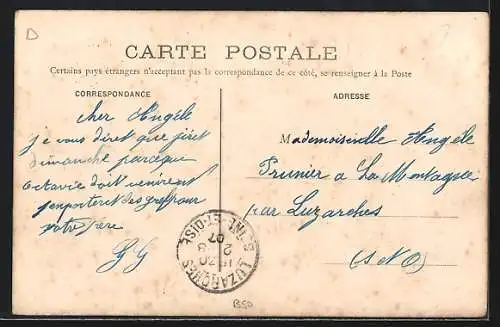 D
CARTE POSTALE
Certains pays étrangers n'acceptant pas la correspondance de ce côté, se renseigner à la Poste
CORRESPONDANCE
ADRESSE
Cher Angéle
je vous diret que jiret
dimanche parceque
Octavie doit venire et
jenporteret des gref pour
votre pere
GG
Mademoiselle Angéle
Prunier a La Montagne
par Luzarches
(S N O)
LUZARCHES
S-INE-&-OISE
15 30
2
07